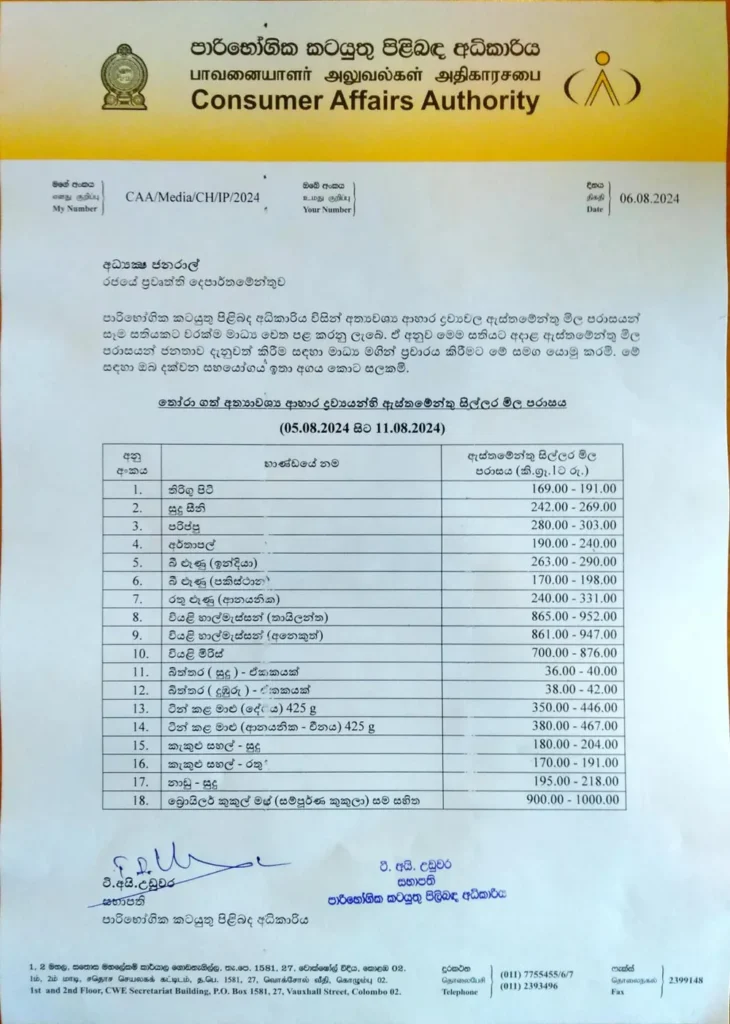 පාරිභෝගික කටයුතු පිළිබඳ අධිකාරිය
பாவனையாளர் அலுவல்கள் அதிகாரசபை
Consumer Affairs Authority
මගේ අංකය
எனது குறிப்பு
My Number
CAA/Media/CH/IP/2024
ඔබේ අංකය
உமது குறிப்பு
Your Number
දිනය
திகதி
Date
06.08.2024
අධ්‍යක්ෂ ජනරාල්
රජයේ ප්‍රවෘත්ති දෙපාර්තමේන්තුව
පාරිභෝගික කටයුතු පිළිබඳ අධිකාරිය විසින් අත්‍යවශ්‍ය ආහාර ද්‍රව්‍යවල ඇස්තමේන්තු මිල පරාසයන්
සෑම සතියකට වරක්ම මාධ්‍ය වෙත පළ කරනු ලැබේ. ඒ අනුව මෙම සතියට අදාළ ඇස්තමේන්තු මිල
පරාසයන් ජනතාව දැනුවත් කිරීම සඳහා මාධ්‍ය මගින් ප්‍රචාරය කිරීමට මේ සමග යොමු කරමි. මේ
සඳහා ඔබ දක්වන සහයෝගය ඉතා අගය කොට සලකමි.
තෝරා ගත් අත්‍යාවශ්‍ය ආහාර ද්‍රව්‍යයන්හි ඇස්තමේන්තු සිල්ලර මිල පරාසය
(05.08.2024 සිට 11.08.2024)
අනු අංකය භාණ්ඩයේ නම ඇස්තමේන්තු සිල්ලර මිල
පරාසය (කි.ග්‍රෑ.1ට රු.)
1. තිරිගු පිටි 169.00 - 191.00
2. සුදු සීනි 242.00 - 269.00
3. පරිප්පු 280.00 - 303.00
4. අර්තාපල් 190.00 - 240.00
5. බී ළූණු (ඉන්දියා) 263.00 - 290.00
6. බී ළූණු (පකිස්ථාන) 170.00 - 198.00
7. රතු ළූණු (ආනයනික) 240.00 - 331.00
8. වියළි හාල්මැස්සන් (තායිලන්ත) 865.00 - 952.00
9. වියළි හාල්මැස්සන් (අනෙකුත්) 861.00 - 947.00
10. වියළි මිරිස් 700.00 - 876.00
11. බිත්තර ( සුදු ) - ඒකකයක් 36.00 - 40.00
12. බිත්තර ( දුඹුරු ) - ඒකකයක් 38.00 - 42.00
13. ටින් කළ මාළු (දේශීය) 425 g 350.00 - 446.00
14. ටින් කළ මාළු (ආනයනික - චීනය) 425 g 380.00 - 467.00
15. කැකුළු සහල් - සුදු 180.00 - 204.00
16. කැකුළු සහල් - රතු 170.00 - 191.00
17. නාඩු - සුදු 195.00 - 218.00
18. බ්‍රොයිලර් කුකුල් මස් (සම්පූර්ණ කුකුලා) සම සහිත 900.00 - 1000.00
ටී.අයි.උඩුවර
සභාපති
පාරිභෝගික කටයුතු පිළිබඳ අධිකාරිය
ටී. අයි. උඩුවර
සභාපති
පාරිභෝගික කටයුතු පිළිබඳ අධිකාරිය
1, 2 මහල, සතොස මහලේකම් කාර්යාල ගොඩනැගිල්ල, තැ.පෙ. 1581, 27, වොක්ෂෝල් වීදිය, කොළඹ 02.
1ம், 2ம் மாடி, சதொச செயலகக் கட்டிடம், த.பெ. 1581, 27, வொக்சோல் வீதி, கொழும்பு 02.
1st and 2nd Floor, CWE Secretariat Building, P.O. Box 1581, 27, Vauxhall Street, Colombo 02.
දුරකථන
தொலைபேசி
Telephone
(011) 7755455/6/7
(011) 2393496
ෆැක්ස්
தொலைநகல்
Fax
2399148